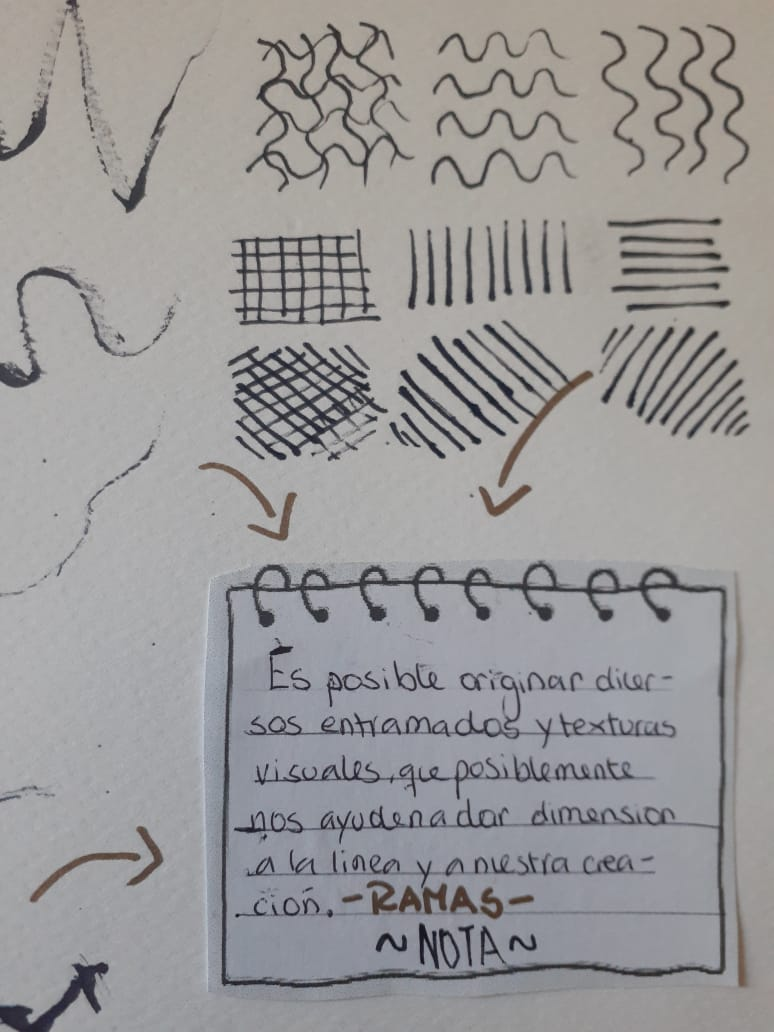 Es posible originar diver-
sos entramados y texturas
visuales, que posiblemente
nos ayuden a dar dimension
a la linea y a nuestra crea-
ción. -RAMAS-
~NOTA~